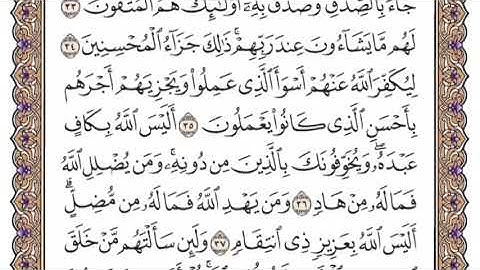 جَآءَ بِٱلصِّدْقِ وَصَدَّقَ بِهِۦٓ أُو۟لَٰٓئِكَ هُمُ ٱلْمُتَّقُونَ ٣٣
لَهُم مَّا يَشَآءُونَ عِندَ رَبِّهِمْ ۚ ذَٰلِكَ جَزَآءُ ٱلْمُحْسِنِينَ ٣٤
لِيُكَفِّرَ ٱللَّهُ عَنْهُمْ أَسْوَأَ ٱلَّذِى عَمِلُوا۟ وَيَجْزِيَهُمْ أَجْرَهُم
بِأَحْسَنِ ٱلَّذِى كَانُوا۟ يَعْمَلُونَ ٣٥ أَلَيْسَ ٱللَّهُ بِكَافٍ
عَبْدَهُۥ ۖ وَيُخَوِّفُونَكَ بِٱلَّذِينَ مِن دُونِهِۦ ۚ وَمَن يُضْلِلِ ٱللَّهُ
فَمَا لَهُۥ مِنْ هَادٍ ٣٦ وَمَن يَهْدِ ٱللَّهُ فَمَا لَهُۥ مِن مُّضِلٍّ ۗ
أَلَيْسَ ٱللَّهُ بِعَزِيزٍ ذِى ٱنتِقَامٍ ٣٧ وَلَئِن سَأَلْتَهُم مَّنْ خَلَقَ